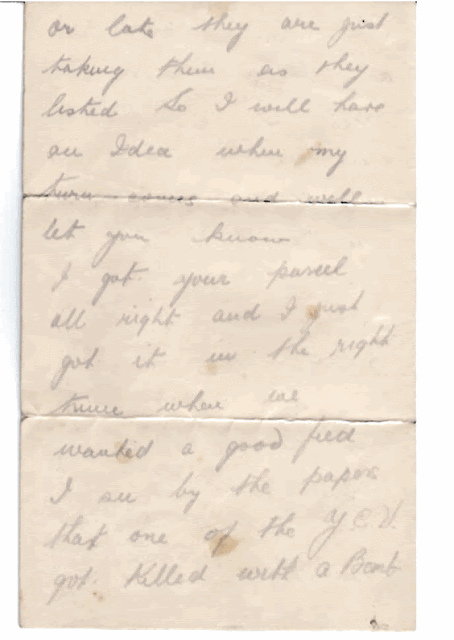 or late they are just
taking them as they
listed So I will have
an Idea when my
turn comes and will
let you know
I got your parcel
all right and I just
got it in the right
time when we
wanted a good feed
I see by the papers
that one of the Y.C.V.
got Killed with a Bomb